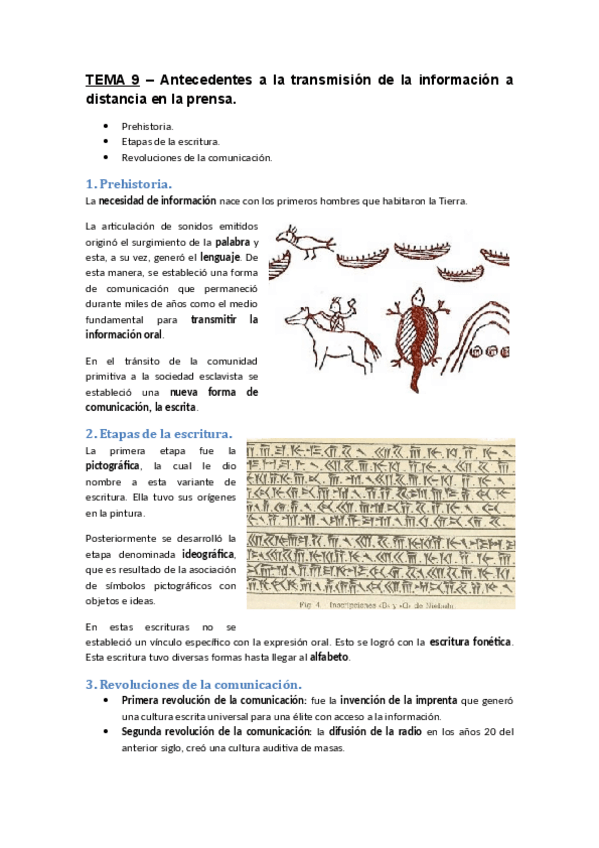 TEMA 9 – Antecedentes a la transmisión de la información a
distancia en la prensa.
• Prehistoria.
• Etapas de la escritura.
• Revoluciones de la comunicación.
1. Prehistoria.
La necesidad de información nace con los primeros hombres que habitaron la Tierra.
La articulación de sonidos emitidos
originó el surgimiento de la palabra y
esta, a su vez, generó el lenguaje. De
esta manera, se estableció una forma
de comunicación que permaneció
durante miles de años como el medio
fundamental para transmitir la
información oral.
En el tránsito de la comunidad
primitiva a la sociedad esclavista se
estableció una nueva forma de
comunicación, la escrita.
2. Etapas de la escritura.
La primera etapa fue la
pictográfica, la cual le dio
nombre a esta variante de
escritura. Ella tuvo sus orígenes
en la pintura.
Posteriormente se desarrolló la
etapa denominada ideográfica,
que es resultado de la asociación
de símbolos pictográficos con
objetos e ideas.
Fig. 4. Inscripciones «B» y «G» de Niebuhr
En estas escrituras no se
estableció un vínculo específico con la expresión oral. Esto se logró con la escritura fonética.
Esta escritura tuvo diversas formas hasta llegar al alfabeto.
3. Revoluciones de la comunicación.
• Primera revolución de la comunicación: fue la invención de la imprenta que generó
una cultura escrita universal para una élite con acceso a la información.
• Segunda revolución de la comunicación: la difusión de la radio en los años 20 del
anterior siglo, creó una cultura auditiva de masas.